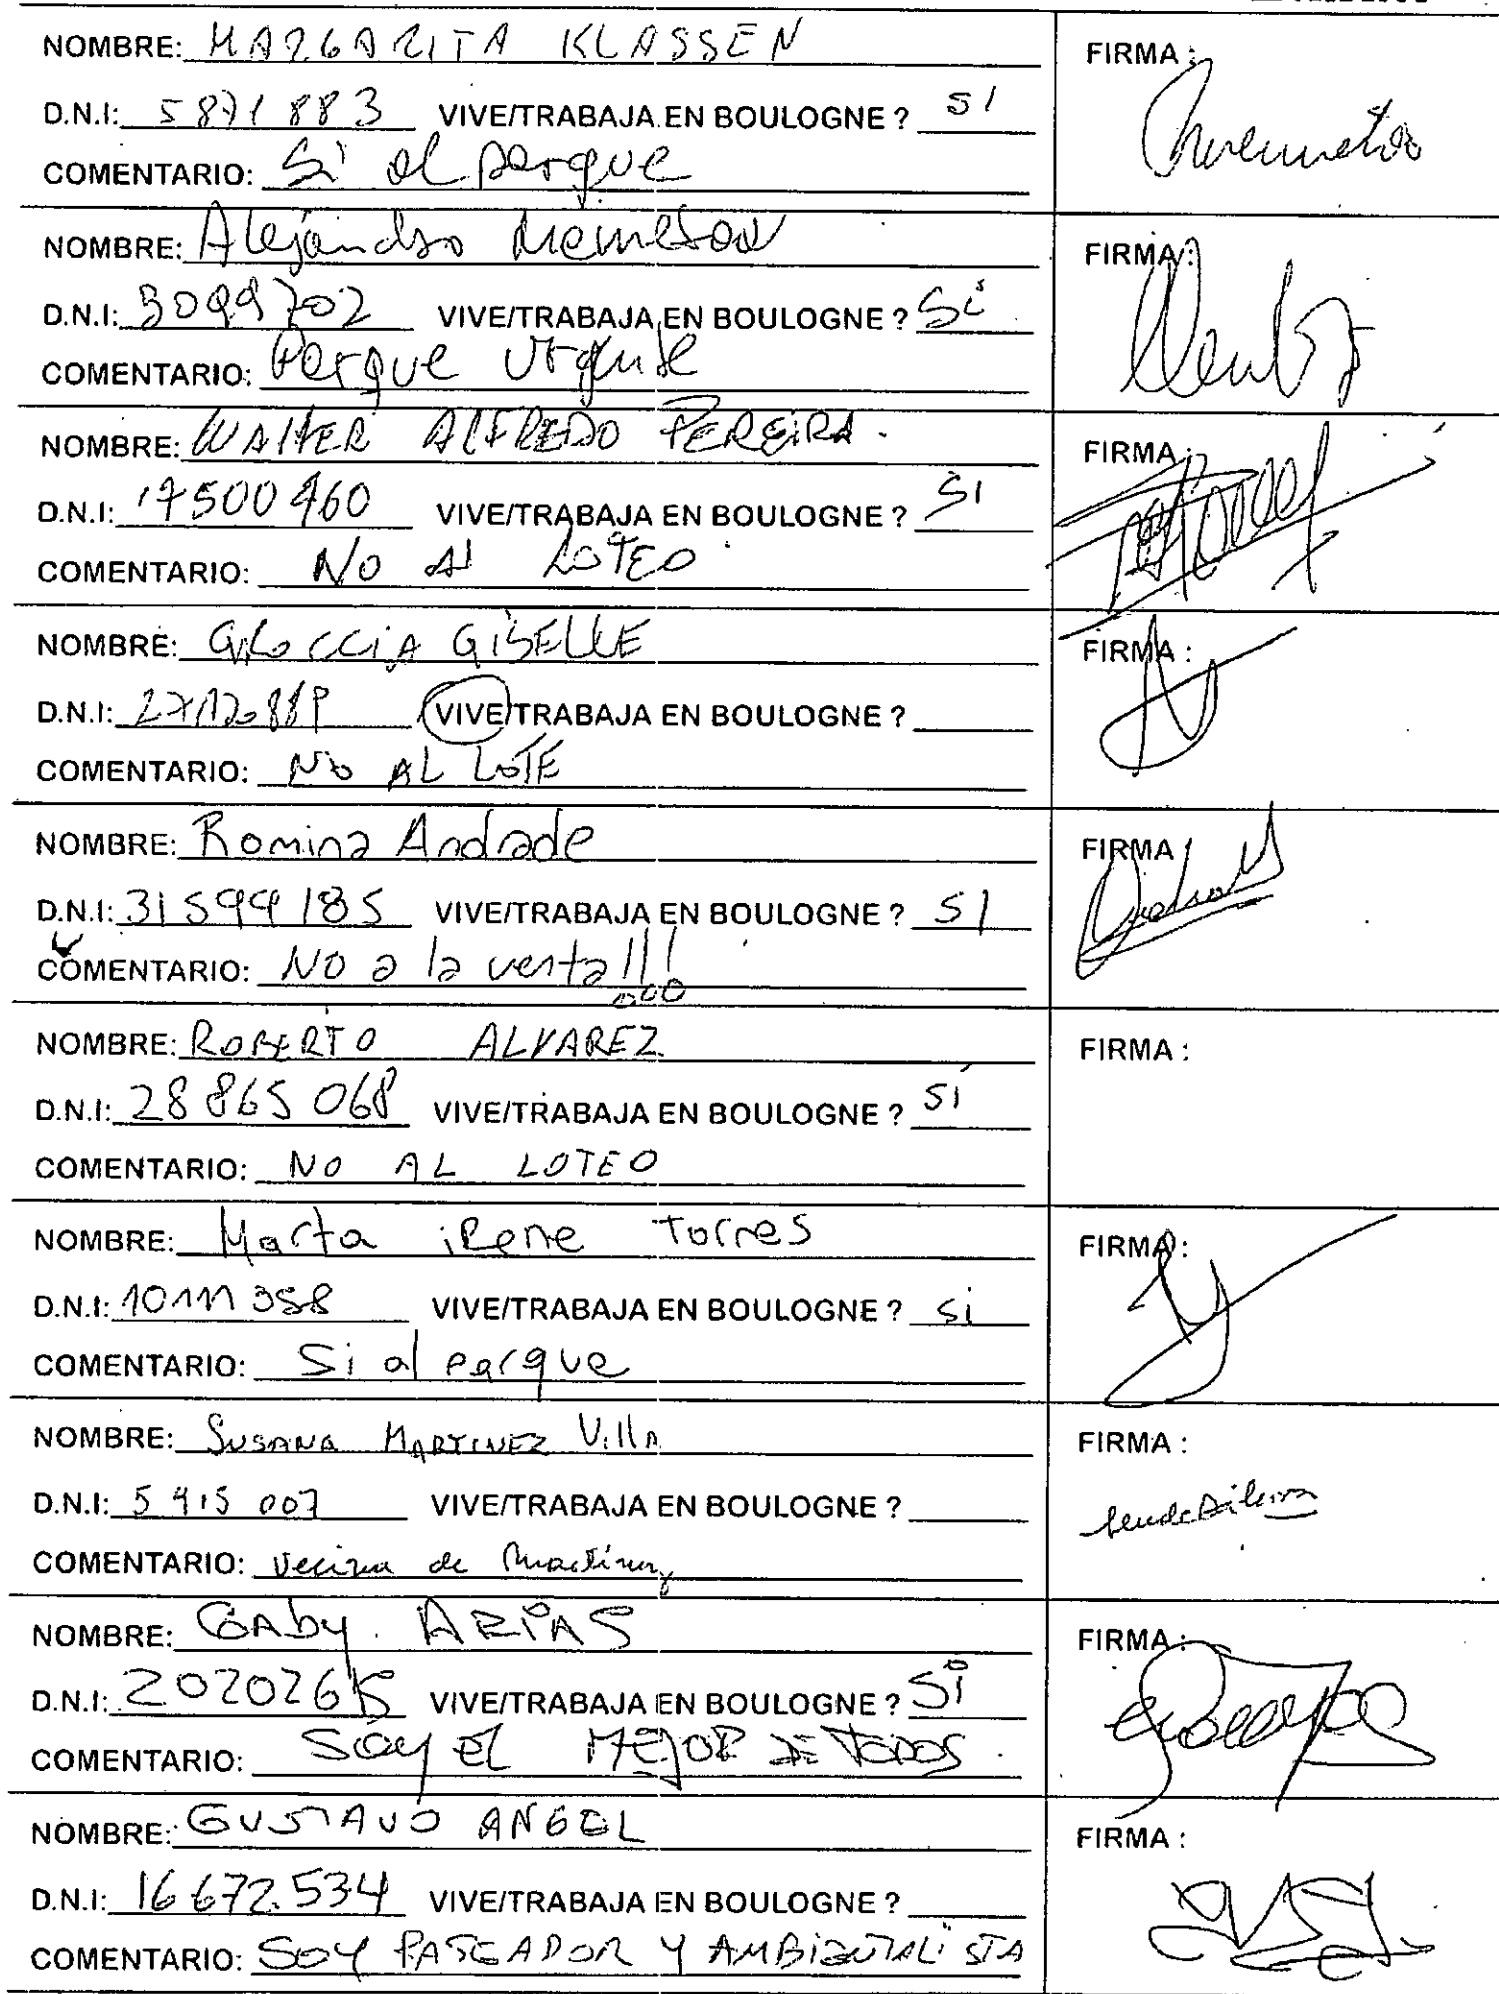 NOMBRE: MARGARITA KLASSEN FIRMA :
D.N.I: 5871883 VIVE/TRABAJA EN BOULOGNE ? SI
COMENTARIO: Si al parque
NOMBRE: Alejandro FIRMA :
D.N.I: 3099702 VIVE/TRABAJA EN BOULOGNE ? Si
COMENTARIO: Parque urgente
NOMBRE: WALTER ALFREDO PEREIRA. FIRMA :
D.N.I: 17500460 VIVE/TRABAJA EN BOULOGNE ? SI
COMENTARIO: NO Al LOTEO
NOMBRE: GISELLE FIRMA :
D.N.I: VIVE/TRABAJA EN BOULOGNE ?
COMENTARIO: NO AL LOTE
NOMBRE: Romina Andrade FIRMA :
D.N.I: 31599185 VIVE/TRABAJA EN BOULOGNE ? SI
COMENTARIO: NO a la venta!!!
NOMBRE: ROBERTO ALVAREZ FIRMA :
D.N.I: 28 865 068 VIVE/TRABAJA EN BOULOGNE ? SÍ
COMENTARIO: NO AL LOTEO
NOMBRE: Marta iRene Torres FIRMA :
D.N.I: 10111358 VIVE/TRABAJA EN BOULOGNE ? Si
COMENTARIO: Si al parque
NOMBRE: SUSANA MARTINEZ VillA FIRMA :
D.N.I: 5 915 007 VIVE/TRABAJA EN BOULOGNE ?
COMENTARIO: Vecina de Martínez
NOMBRE: GAby ARIAS FIRMA :
D.N.I: VIVE/TRABAJA EN BOULOGNE ? Si
COMENTARIO: Soy el MEJOR DE TODOS.
NOMBRE: GUSTAVO ANGEL FIRMA :
D.N.I: 16 672.534 VIVE/TRABAJA EN BOULOGNE ?
COMENTARIO: SOY PASEADOR Y AMBIENTALISTA